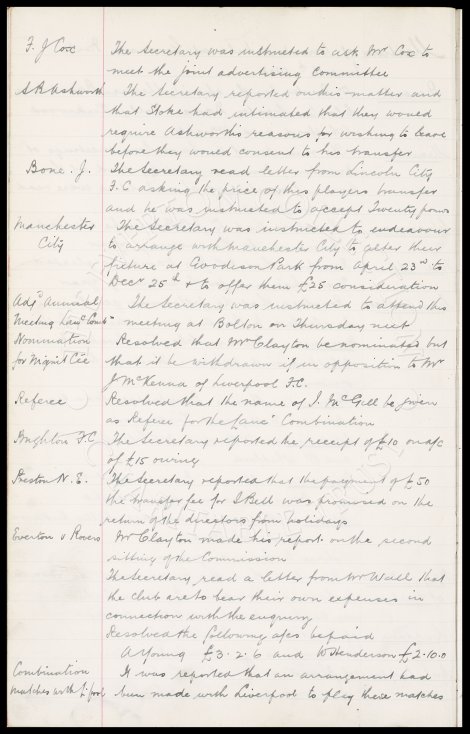 F. J Cox The Secretary was instructed to ask Mr Cox to
meet the joint advertising committee
S R Ashworth The Secretary reported on this matter and
that Stoke had intimated that they would
require Ashworth's reasons for wishing to leave
before they would consent to his transfer
Bone. J. The Secretary read letter from Lincoln City
F.C asking the price of this players transfer
and he was instructed to accept Twenty pounds
Manchester The Secretary was instructed to endeavour
City to arrange with Manchester City to alter their
fixture at Goodison Park from April 23rd to
Decr 25th & to offer them £25 consideration
Adjd annual The Secretary was instructed to attend this
Meeting Lancs Combn meeting at Bolton on Thursday next
Nomination Resolved that Mr Clayton be nominated but
for Mgmt Cee that it be withdrawn if in opposition to Mr
J McKenna of Liverpool F.C.
Referee Resolved that the name of J. McGill be given
as Referee for the Lancs Combination
Brighton F.C. The Secretary reported the receipt of £10 on a/c
of £15 owing
Preston N. E. The Secretary reported that the payment of £50
the transfer fee for S Bell was promised on the
return of the directors from holidays
Everton v Rovers Mr Clayton made his report on the second
sitting of the Commission
The Secretary read a letter from Mr Wall that
the club are to bear their own expenses in
connection with the enquiry
Resolved the following a/cs be paid
A Young £3.2.6 and W Henderson £2.10.0
Combination It was reported that an arrangement had
matches with L'pool been made with Liverpool to play these matches